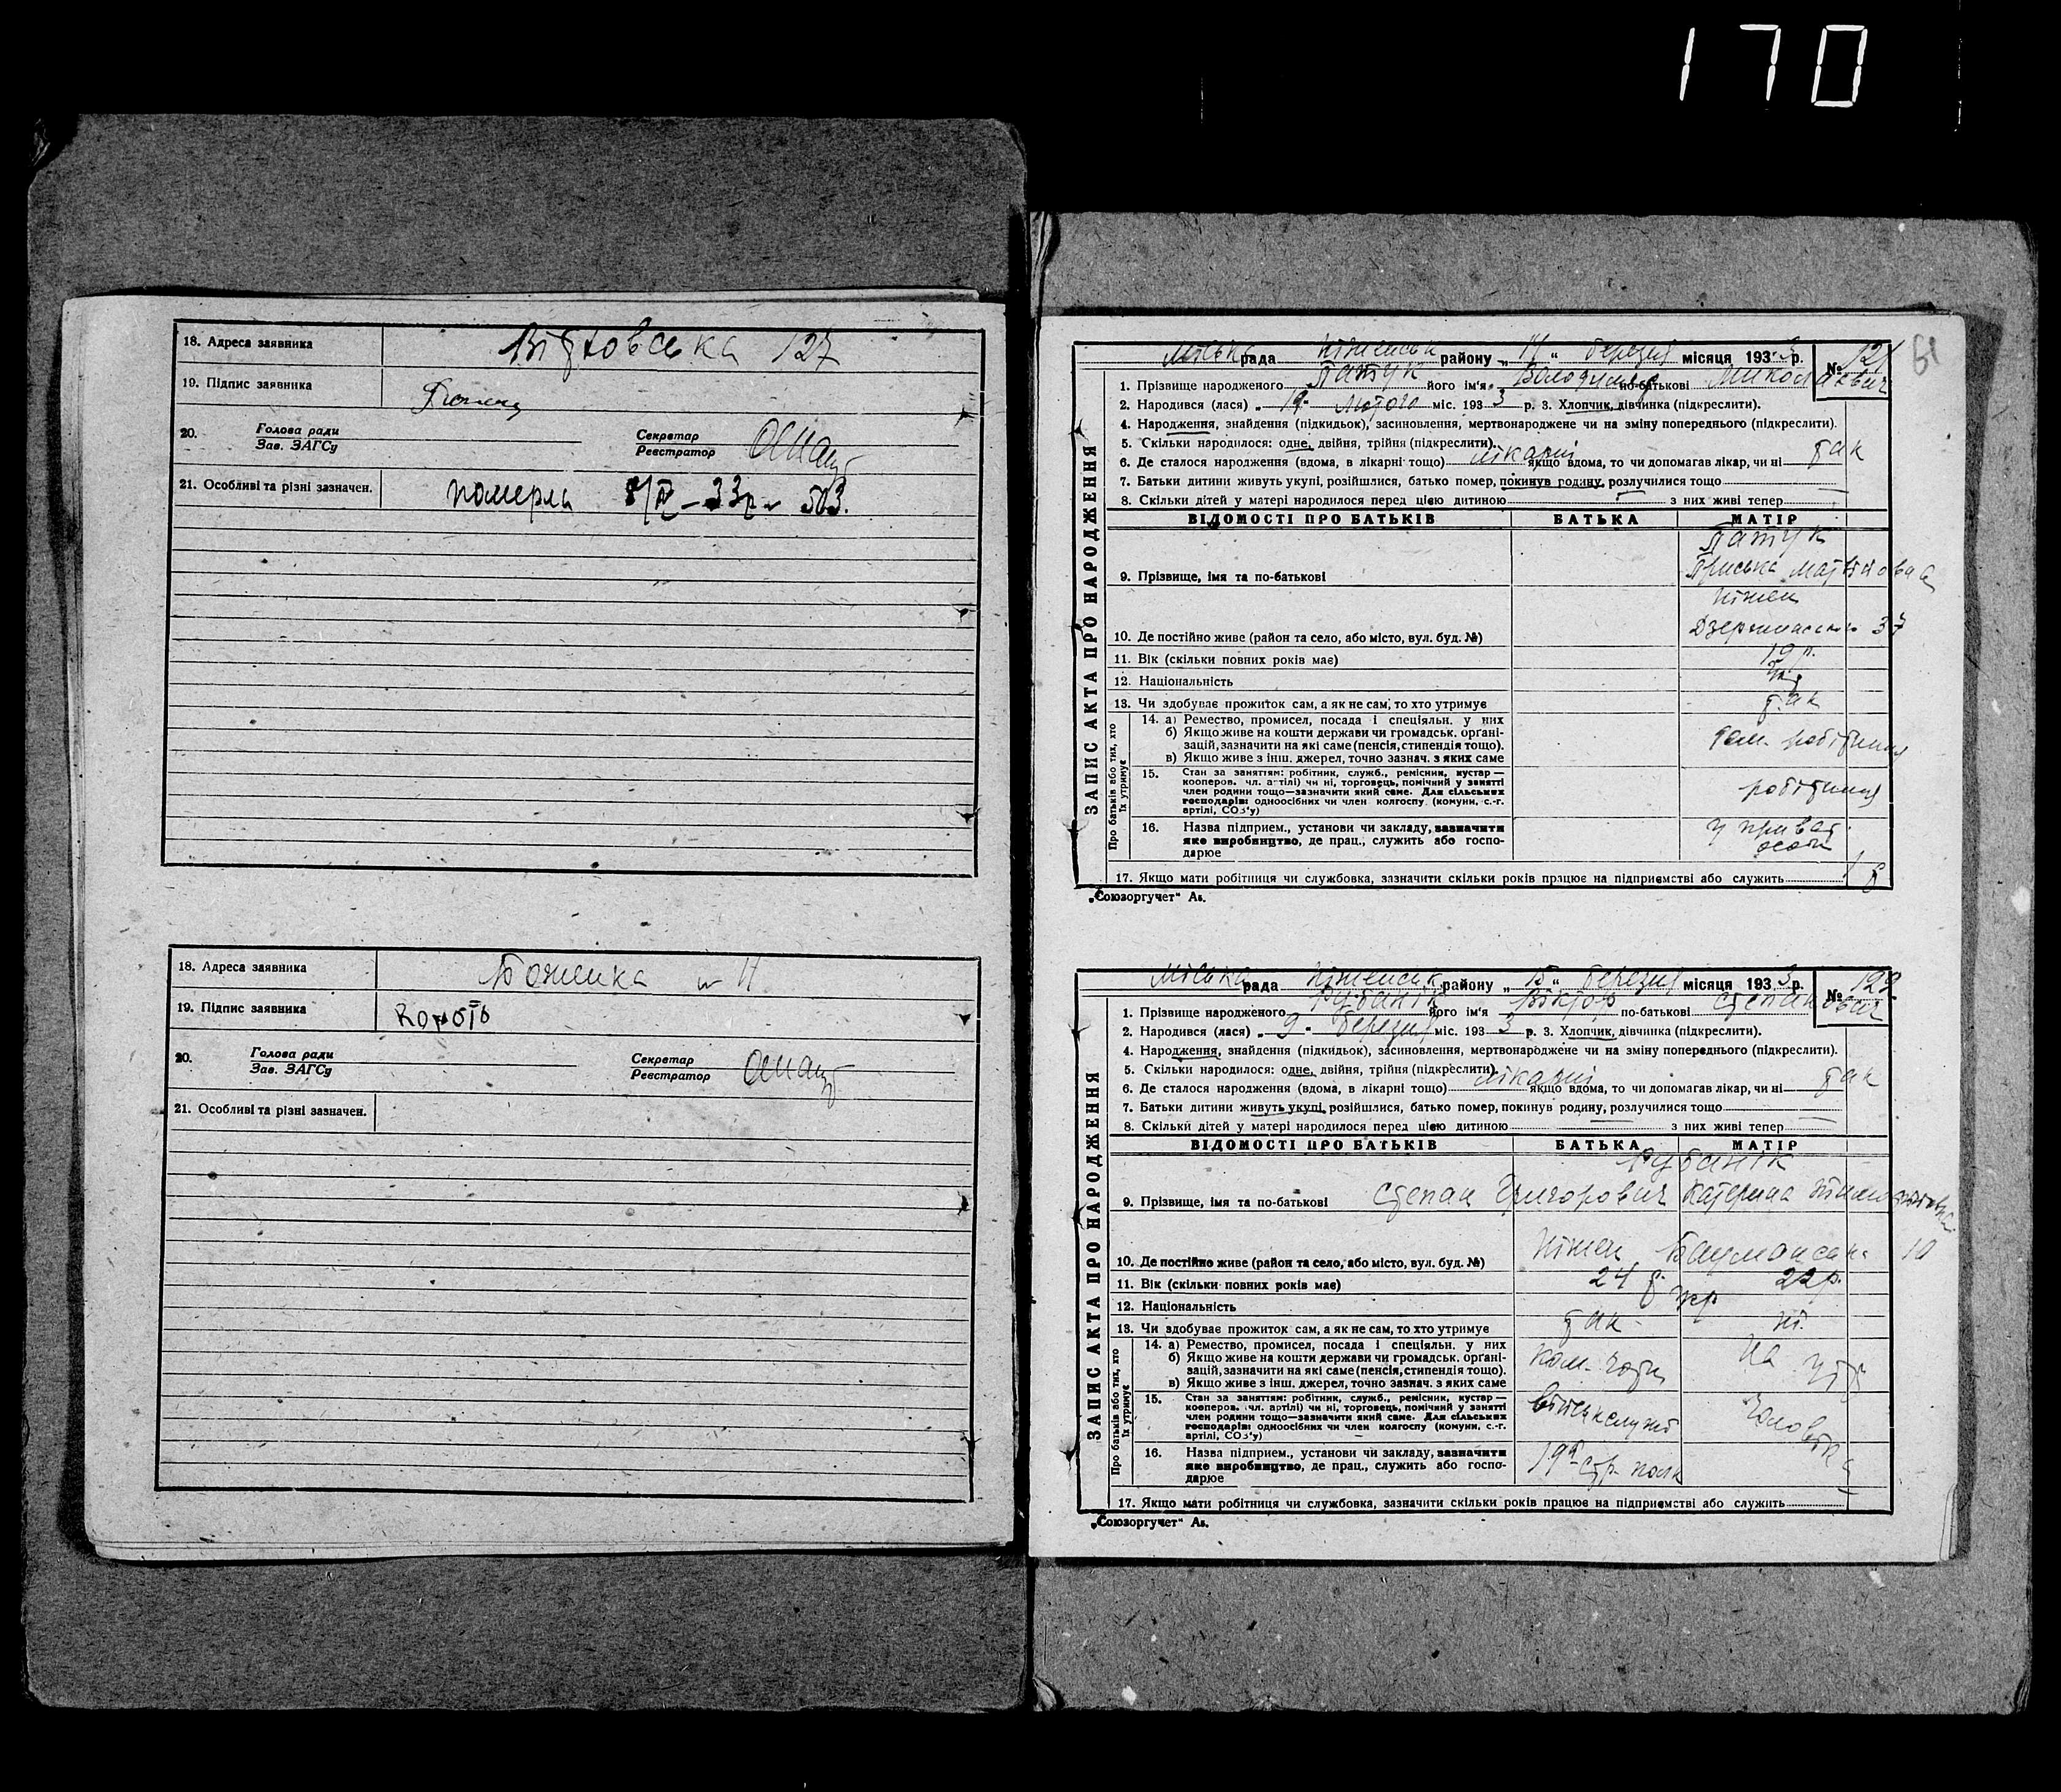 170
18. Адреса заявника Вітовська 127
19. Підпис заявника
20. Голова ради
Зав. ЗАГСу
Секретар
Реєстратор
21. Особливі та різні зазначен. померла 8/IV – 33р № 503.
18. Адреса заявника Боженка № 11
19. Підпис заявника Короть
20. Голова ради
Зав. ЗАГСу
Секретар
Реєстратор
21. Особливі та різні зазначен.
61
ЗАПИС АКТА ПРО НАРОДЖЕННЯ
Міська рада Ніженськ району „14“ березня місяця 1933 р. № 121
1. Прізвище народженого Патук його ім'я Володимир по-батькові Миколаєвич
2. Народився (лася) „19“ лютого міс. 1933 р. 3. Хлопчик, дівчинка (підкреслити).
4. Народження, знайдення (підкидьок), засиновлення, мертвонароджене чи на зміну попереднього (підкреслити).
5. Скільки народилося: одне, двійня, трійня (підкреслити).
6. Де сталося народження (вдома, в лікарні тощо) лікарні якщо вдома, то чи допомагав лікар, чи ні так
7. Батьки дитини живуть укупі, розійшлися, батько помер, покинув родину, розлучилися тощо
8. Скільки дітей у матері народилося перед цією дитиною з них живі тепер
ВІДОМОСТІ ПРО БАТЬКІВ БАТЬКА МАТІР
Патук
9. Прізвище, імя та по-батькові Приська Матвійовна
Ніжен
10. Де постійно живе (район та село, або місто, вул. буд. №) Дзержинська 37
11. Вік (скільки повних років має) 19 р.
12. Національність
13. Чи здобуває прожиток сам, а як не сам, то хто утримує так
Про батьків або тих, хто їх утримує
14. а) Ремество, промисел, посада і спеціяльн. у них
б) Якщо живе на кошти держави чи громадськ. органі-
зацій, зазначити на які саме (пенсія, стипендія тощо). дом. робітниця
в) Якщо живе з інш. джерел, точно зазнач. з яких саме
15. Стан за заняттям: робітник, служб., ремісник, кустар—
кооперов. (чл. артілі) чи ні, торговець, помічний у занятті
член родини тощо—зазначити який саме. Для сільських робітниця
господарів: одноосібних чи член колгоспу (комуни, с.-г.
артілі, СОЗ'у)
16. Назва підприєм., установи чи закладу, зазначити у приват.
яке виробництво, де прац., служить або госпо- особи
дарює
17. Якщо мати робітниця чи службовка, зазначити скільки років працює на підприємстві або служить
„Союзоргучет“ Ав.
ЗАПИС АКТА ПРО НАРОДЖЕННЯ
Міська рада Ніженськ району „15“ березня місяця 1933 р. № 122
1. Прізвище народженого Рубанік його ім'я Віктор по-батькові Степанович
2. Народився (лася) „9“ березня міс. 1933 р. 3. Хлопчик, дівчинка (підкреслити).
4. Народження, знайдення (підкидьок), засиновлення, мертвонароджене чи на зміну попереднього (підкреслити).
5. Скільки народилося: одне, двійня, трійня (підкреслити).
6. Де сталося народження (вдома, в лікарні тощо) лікарні якщо вдома, то чи допомагав лікар, чи ні так
7. Батьки дитини живуть укупі, розійшлися, батько помер, покинув родину, розлучилися тощо
8. Скільки дітей у матері народилося перед цією дитиною з них живі тепер
ВІДОМОСТІ ПРО БАТЬКІВ БАТЬКА МАТІР
Рубанік
9. Прізвище, імя та по-батькові Степан Григорович Катерина
10. Де постійно живе (район та село, або місто, вул. буд. №) Ніжен Бауманська 10
11. Вік (скільки повних років має) 24 р. 22 р.
12. Національність укр
13. Чи здобуває прожиток сам, а як не сам, то хто утримує так ні.
Про батьків або тих, хто їх утримує
14. а) Ремество, промисел, посада і спеціяльн. у них
б) Якщо живе на кошти держави чи громадськ. органі- ком. на
зацій, зазначити на які саме (пенсія, стипендія тощо). утр
в) Якщо живе з інш. джерел, точно зазнач. з яких саме
15. Стан за заняттям: робітник, служб., ремісник, кустар—
кооперов. (чл. артілі) чи ні, торговець, помічний у занятті військслужб чоловіка
член родини тощо—зазначити який саме. Для сільських
господарів: одноосібних чи член колгоспу (комуни, с.-г.
артілі, СОЗ'у)
16. Назва підприєм., установи чи закладу, зазначити
яке виробництво, де прац., служить або госпо- стр. полк
дарює
17. Якщо мати робітниця чи службовка, зазначити скільки років працює на підприємстві або служить
„Союзоргучет“ Ав.